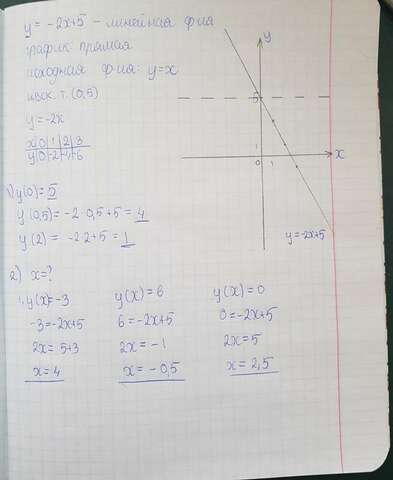 y = -2x+5 - линейная ф-ия
график прямая
исходная ф-ия y=x
искл. т. (0,5)
y=-2x
x|0|1|2|3
y|0|-2|-4|-6
1) y(0)=5
y(0,5)= -2·0,5+5=4
y(2)= -2·2+5=1
2) x=?
y(x)=-3
-3=-2x+5
2x= 5+3
x=4
y(x)=6
6=-2x+5
2x=-1
x=-0,5
y(x)=0
0=-2x+5
2x=5
x=2,5
y
5
1
0
1
x
y=-2x+5